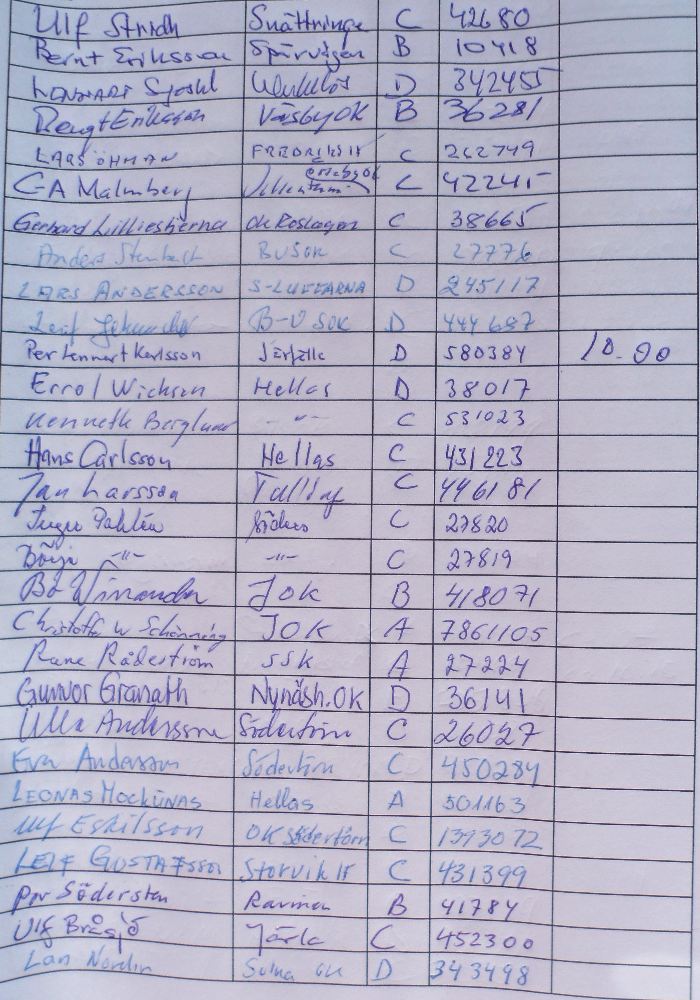 Ulf Stridh Snättringe C 42680
Bernt Eriksson Spårvägen B 10418
Lennart D 342455
Bengt Eriksson Väsby OK B 36281
LARS ÖHMAN FREDRIKS IF C 262749
C-A Malmberg C 42241
Gerhard Lilliestierna OK Roslagen C 38665
Anders BUSOK C 27776
LARS ANDERSSON S-LUFFARNA D 245117
Leif B-U SOK D 444687
Per Lennart Karlsson Järfälla D 580384 10.00
Errol Wickson Hellas D 38017
Kenneth Berglund -"- C 531023
Hans Carlsson Hellas C 431223
Jan Larsson C 446181
C 27820
Börje -"- -"- C 27819
Bo JOK B 418071
W Schönning JOK A 7861105
Rune Råderström SSK A 27224
Gunvor Granath Nynäsh. OK D 36141
Ulla Andersson Södertörn C 26027
Eva Andersson Södertörn C 450284
LEONAS MOCKUNAS Hellas A 501163
Ulf Eskilsson OK Södertörn C 1393072
LEIF GUSTAFSSON Storvik IF C 431399
Per Södersten Ravinen B 41784
Ulf Bråsjö Järla C 452300
Nordin Solna OK D 343498